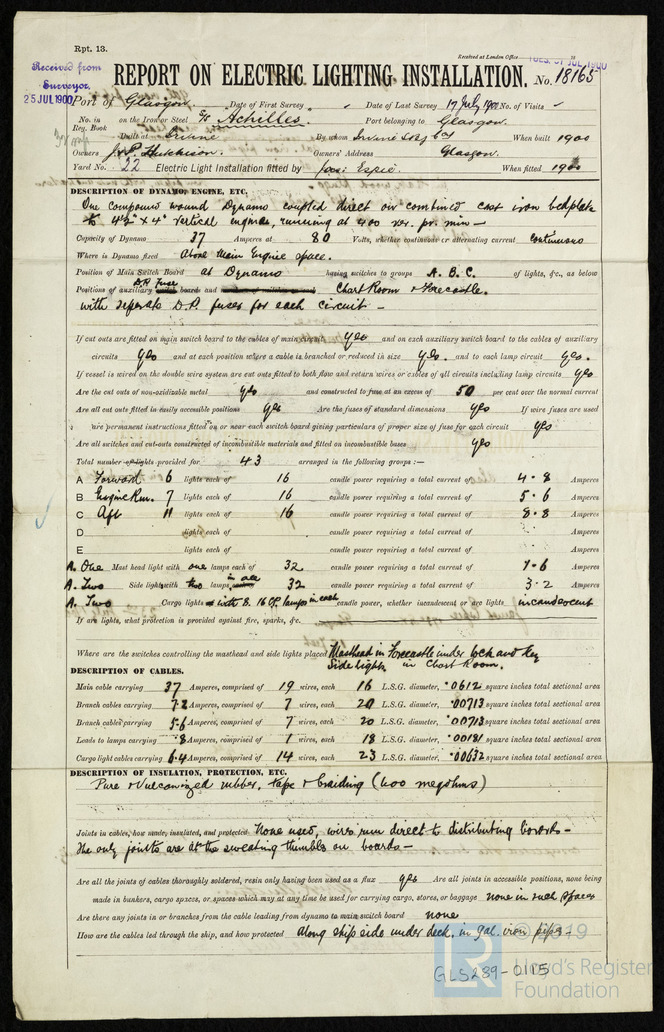 Rpt. 13.
Received at London Office TUES. 31 JUL 1900
Received from Surveyor. 25 JUL 1900
REPORT ON ELECTRIC LIGHTING INSTALLATION. No. 18165
Port of Glasgow Date of First Survey Date of Last Survey 17 July 1900 No. of Visits
No. in Reg. Book on the Iron or Steel S/S Achilles. Port belonging to Glasgow.
Built at Irvine By whom Irvine S.B.g Coy When built 1900
Owners J & P Hutchison. Owners' Address Glasgow.
Yard No. 22 Electric Light Installation fitted by Jas: Espie. When fitted 1900
DESCRIPTION OF DYNAMO, ENGINE, ETC.
One compound wound Dynamo coupled direct on combined cast iron bedplate
to 4½" x 4" vertical engines, running at 400 rev. pr. min —
Capacity of Dynamo 37 Amperes at 80 Volts, whether continuous or alternating current continuous
Where is Dynamo fixed Above Main Engine space.
Position of Main Switch Board at Dynamo having switches to groups A. B. C. of lights, &c., as below
Positions of auxiliary D.P. Fuse boards and Chart Room & Forecastle.
with seperate D.P. fuses for each circuit —
If cut outs are fitted on main switch board to the cables of main circuit yes and on each auxiliary switch board to the cables of auxiliary
circuits yes and at each position where a cable is branched or reduced in size yes. and to each lamp circuit yes.
If vessel is wired on the double wire system are cut outs fitted to both flow and return wires or cables of all circuits including lamp circuits yes
Are the cut outs of non-oxidizable metal yes and constructed to fuse at an excess of 50 per cent over the normal current
Are all cut outs fitted in easily accessible positions yes Are the fuses of standard dimensions yes If wire fuses are used
are permanent instructions fitted on or near each switch board giving particulars of proper size of fuse for each circuit yes
Are all switches and cut-outs constructed of incombustible materials and fitted on incombustible bases yes
Total number of lights provided for 43 arranged in the following groups :—
A Forward 6 lights each of 16 candle power requiring a total current of 4.8 Amperes
B Engine Rm. 7 lights each of 16 candle power requiring a total current of 5.6 Amperes
C Aft 11 lights each of 16 candle power requiring a total current of 8.8 Amperes
D lights each of candle power requiring a total current of Amperes
E lights each of candle power requiring a total current of Amperes
A. One Mast head light with one lamps each of 32 candle power requiring a total current of 1.6 Amperes
A. Two Side light with two lamps in all 32 candle power requiring a total current of 3.2 Amperes
A. Two Cargo lights with 8. 16 CP. lamps in each candle power, whether incandescent or arc lights incandescent
If arc lights, what protection is provided against fire, sparks, &c.
Where are the switches controlling the masthead and side lights placed Masthead in Forecastle under lock and key
Side lights in Chart Room.
DESCRIPTION OF CABLES.
Main cable carrying 37 Amperes, comprised of 19 wires, each 16 L.S.G. diameter, .0612 square inches total sectional area
Branch cables carrying 7.2 Amperes, comprised of 7 wires, each 20 L.S.G. diameter, .00713 square inches total sectional area
Branch cables carrying 5.6 Amperes, comprised of 7 wires, each 20 L.S.G. diameter, .00713 square inches total sectional area
Leads to lamps carrying .8 Amperes, comprised of 1 wires, each 18 L.S.G. diameter, .00181 square inches total sectional area
Cargo light cables carrying 6.4 Amperes, comprised of 14 wires, each 23 L.S.G. diameter, .00632 square inches total sectional area
DESCRIPTION OF INSULATION, PROTECTION, ETC.
Pure & Vulcanized rubber, tape & braiding (600 megohms)
Joints in cables, how made, insulated, and protected None used, wires run direct to distributing boards —
The only joints are at the sweating thimbles on boards —
Are all the joints of cables thoroughly soldered, resin only having been used as a flux yes Are all joints in accessible positions, none being
made in bunkers, cargo spaces, or spaces which may at any time be used for carrying cargo, stores, or baggage none in such spaces
Are there any joints in or branches from the cable leading from dynamo to main switch board none
How are the cables led through the ship, and how protected Along ship side under deck, in gal. iron pipes —
© 2019
LR Lloyd's Register Foundation
GLS289-0115